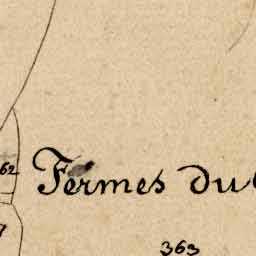 62
Fermes du
7
363